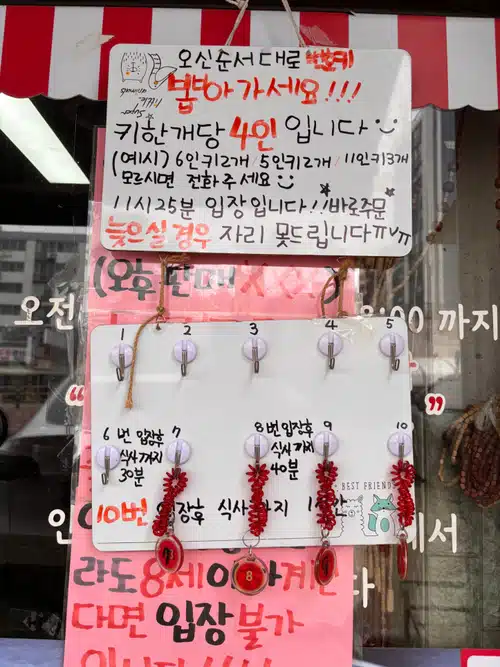 오신순서대로 번호키
뽑아가세요!!!
키한개당 4인 입니다
(예시) 6인키2개 5인키2개 / 11인키3개
모르시면 전화주세요
11시25분 입장입니다!! 바로주문
늦으실경우 자리 못드립니다ㅠㅠ
(오후 판매 XXX)
오전
8:00 까지
1 2 3 4 5
6번 입장후 식사까지 30분
7
8번 입장후 식사까지 40분
9
10
BEST FRIEND
10번 입장후 식사까지 1시간
에서
8
라도 8세이하계신
다면 입장불가
입니다